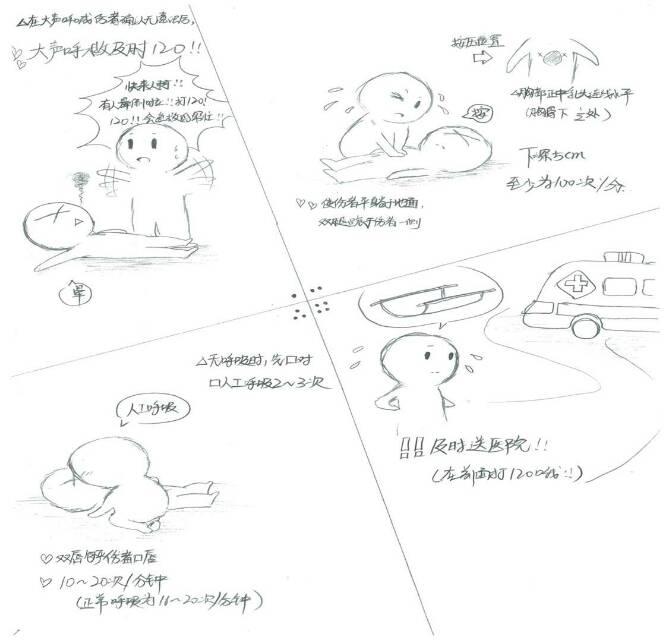 △在大声呼喊伤者确认无意识后,
大声呼救及时120!!
快来人呀!!
有人晕倒啦!!打120!
120!!
晕
按压位置
△胸部正中乳头连线水平
(胸骨下 处)
按
下深5cm
至少为100次/分.
使伤者平躺于地面,
双腿跪于伤者一侧
△无呼吸时,先口对
口人工呼吸2~3次
人工呼吸
双唇 伤者口唇
10~20次/分钟
(正常呼吸为16~20次/分钟)
!!及时送医院!!
(在前面打120哦!!)